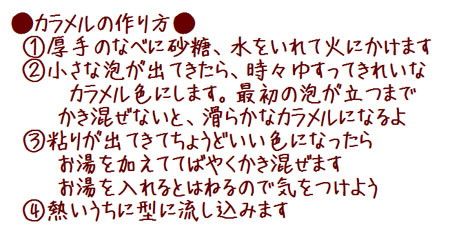 ●カラメルの作り方●
①厚手のなべに砂糖、水をいれて火にかけます
②小さな泡が出てきたら、時々ゆすってきれいな
カラメル色にします。最初の泡が立つまで
かき混ぜないと、滑らかなカラメルになるよ
③粘りが出てきてちょうどいい色になったら
お湯を加えててばやくかき混ぜます
お湯を入れるとはねるので気をつけよう
④熱いうちに型に流し込みます